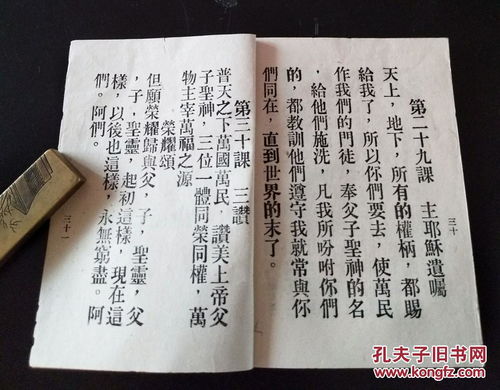 三十
第二十九課　主耶穌遺囑
天上，地下，所有的權柄，都賜
給我了，所以你們要去，使萬民
作我們的門徒，奉父子聖神的名
，給他們施洗，凡我所吩咐你們
的，都教訓他們遵守我就常與你
們同在，直到世界的末了。
第三十課　三讚
普天之下萬國萬民，讚美上帝父
子聖神，三位一體同榮同權，萬
物主宰萬福之源
榮耀頌
但願榮耀歸與父，子，聖靈，父
，子，聖靈，起初這樣，現在這
樣，以後也這樣，永無窮盡。阿
們。阿們。
三十一
孔夫子旧书网
www.kongfz.com